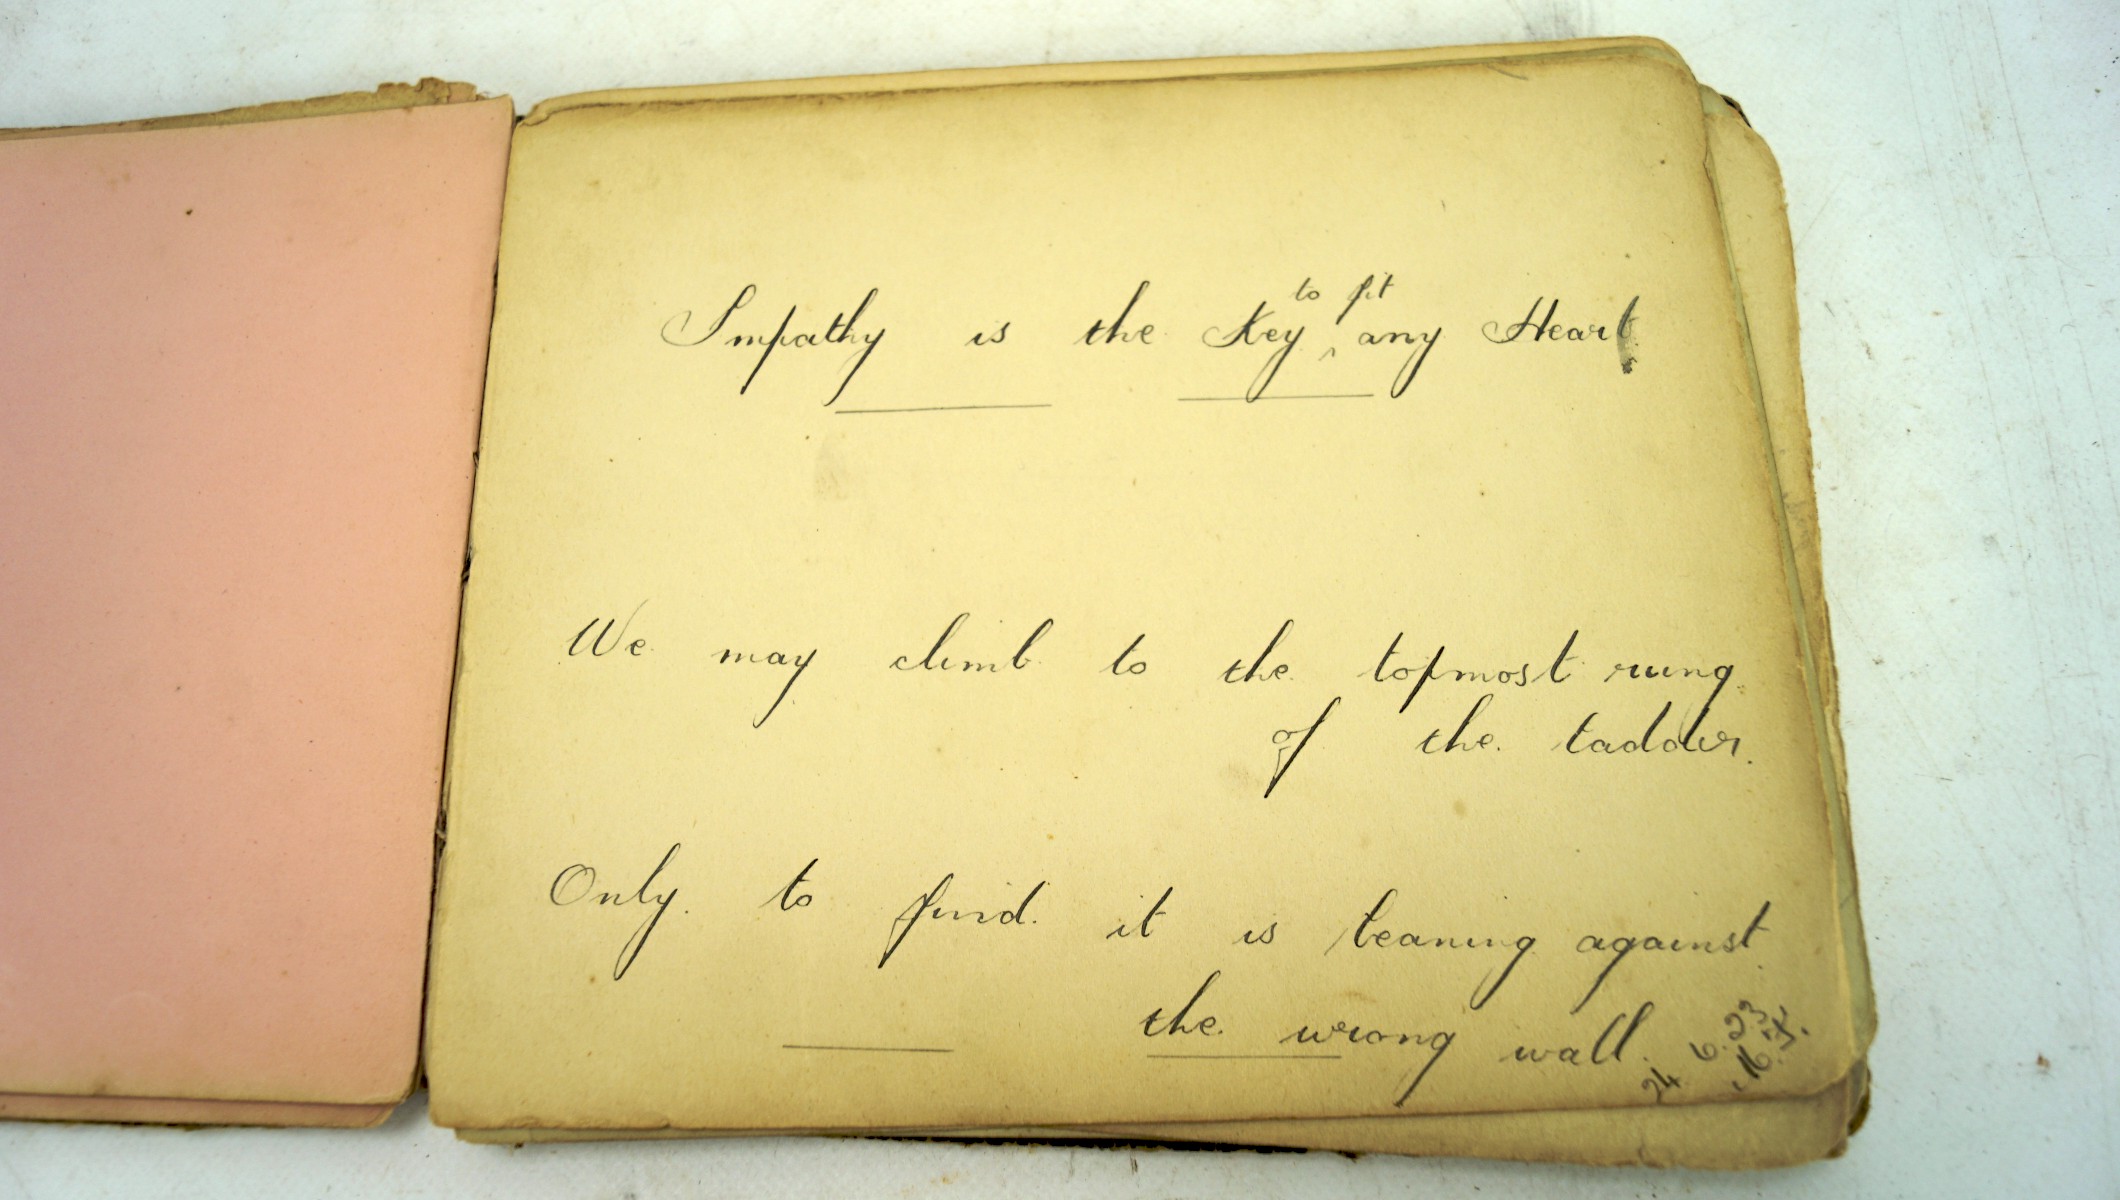 Smpathy is the Key to fit any Heart
We may climb to the topmost rung
of the ladder.
Only to find it is leaning against
the wrong wall.
24.6.23